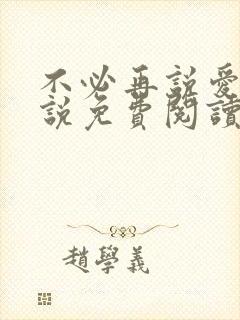 不必再說愛
說免費閱讀
趙學義